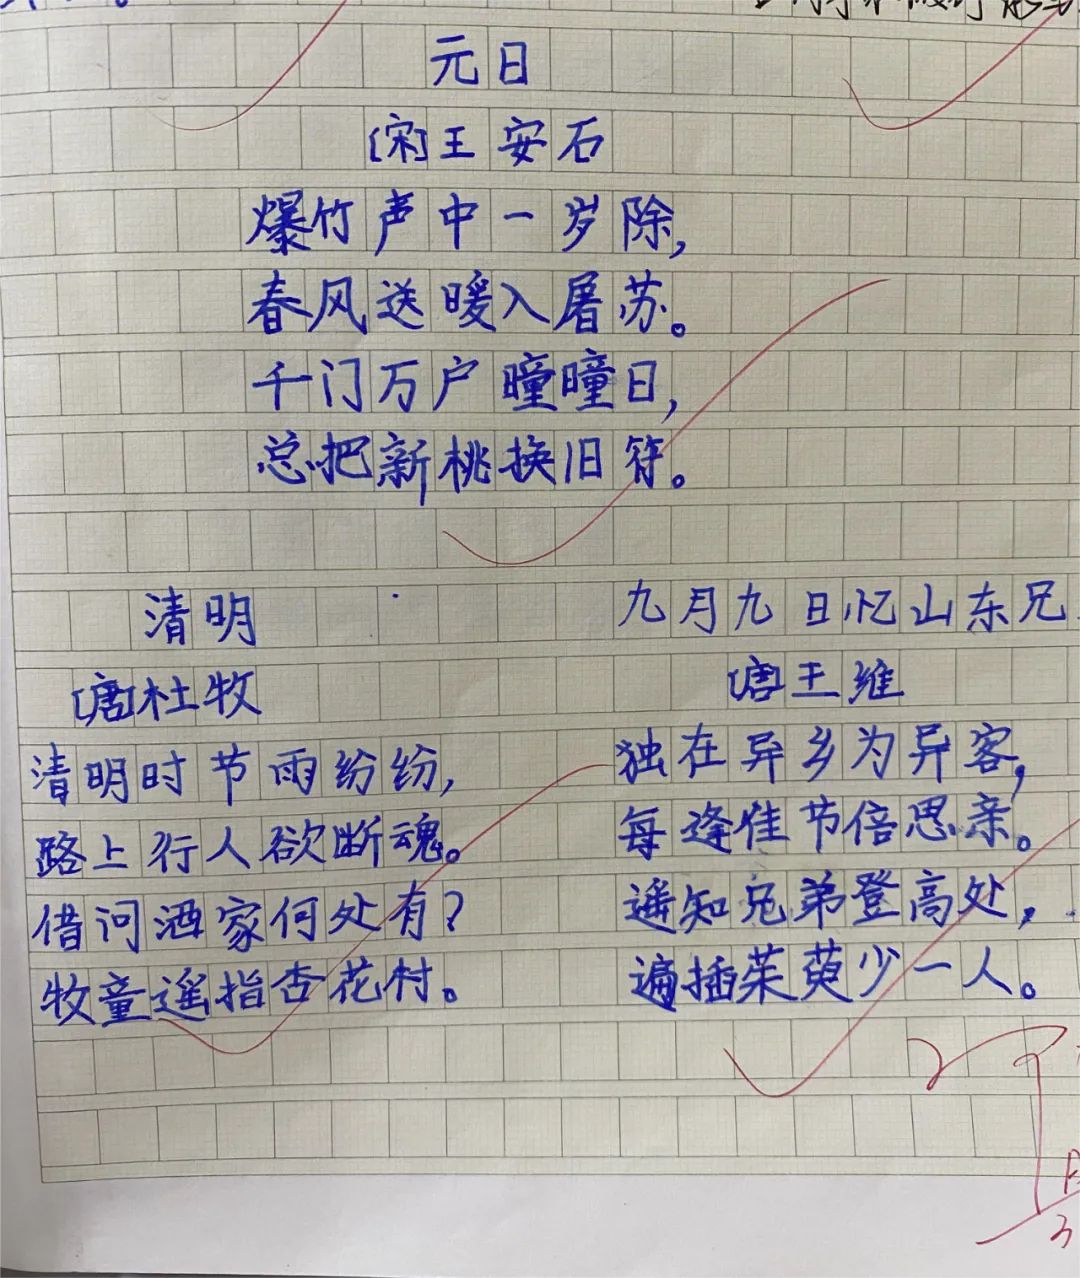 元日
[宋]王安石
爆竹声中一岁除,
春风送暖入屠苏。
千门万户曈曈日,
总把新桃换旧符。
清明
[唐]杜牧
清明时节雨纷纷,
路上行人欲断魂。
借问酒家何处有?
牧童遥指杏花村。
九月九日忆山东兄
[唐]王维
独在异乡为异客,
每逢佳节倍思亲。
遥知兄弟登高处,
遍插茱萸少一人。